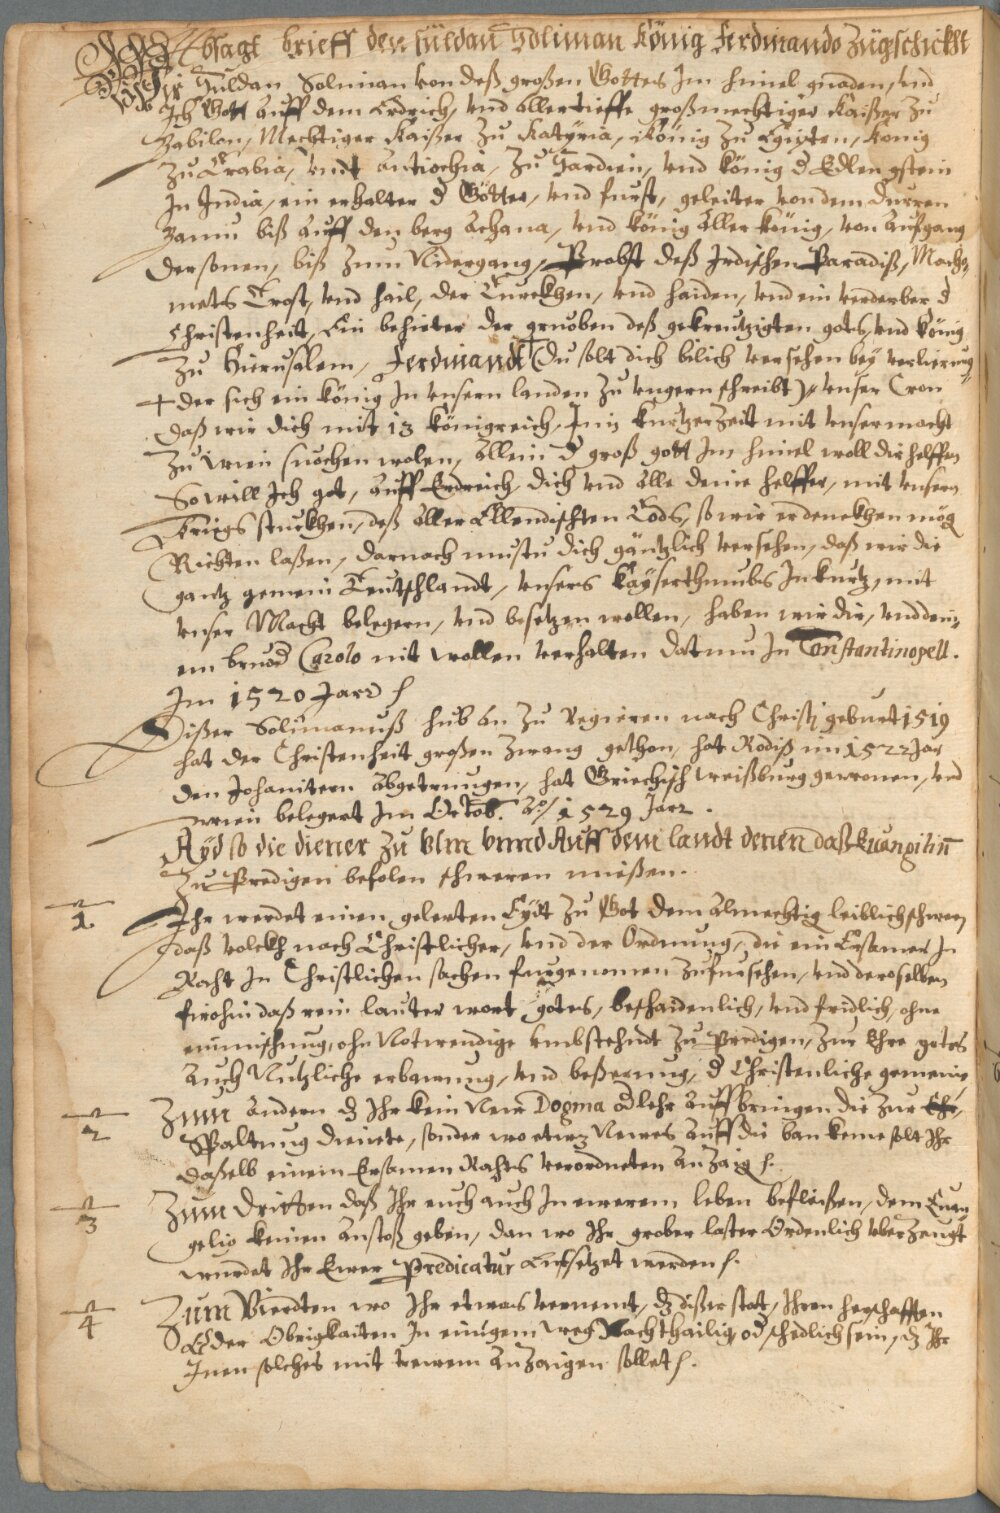 Absagt brieff den Suldan Soliman König Ferdinando Zůgschickht
Wir Suldan Soliman von deß großen Gottes Im himel gnaden, vnd
Ich Gott auff dem Erdrich, vnd allertieffe großmechtiger Kaißer zu
Babilon, Mechtiger Kaißer zu Katyria, König zu Egipten, König
zu Arabia, vndt Antiochia, zu Sardien, vnd König d Edlen gstein
In India, ein erhalter d Götter, vnd furst, geleiter von dem Durren
Baum biß auff den berg Achana, vnd König aller König, von aufgang
der sonen, biß zum Nidergang, Probst deß Irdischen Paradiß, Macho-
mets Trost, vnd hail, der Turckhen, vnd haiden, vnd ein verderber d
Christenheit, Ein behieter der gruoben deß gekreutzigten gots, vnd König
zu Hierusalem, Ferdinandt + (Du solt dich bilich versehen bey verlierung
+ der sich ein König In vnsern landen zu vngern schreibt) vnser Cron
daß wir dich mit 13 Königreich, Inn kurtzer Zeit mit vnser macht
zu Wien suochen wolen, allein d groß gott Im himel woll dir helffen
So will Ich got, auff Erdreich, dich vnd alle deine helffer, mit vnsern
Kriegs stuckhen, deß aller Ellendischten Tods, so wir erdenckhen mög
Richten laßen, darnach mustu dich gäntzlich versehen, daß wir die
gantz gemein Teutschlandt, vnsers Kayserthumbs In kurtz, mit
vnser Macht belegern, vnd besetzen wollen, haben wir dir, vnd dein-
em bruod Carolo nit wollen verhalten Datum In Constantinopell.
Im 1520 Jare
Dißer Solimanuß hub an zu Regieren nach Christi geburt 1519
hat der Christenheit großen Zwang gethon, hat Rodiß im 1522 Jar
den Johanitern abgetrungen, hat Griechisch weißburg gewonen, vnd
wien belegert Im Octob. Ao/ 1529 Jarr.
Ayd so die diener zu Vlm vnnd Auff dem landt denen daß Euangilin
zu Predigen befolen schweren mießen.
1 Ihr werdet einen gelerten Eydt zu Got dem almechtig leiblich schweren
daß volckh nach Christlicher, vnd der Ordnung, die ein Ersamer In
Raht In Christlichen sachen furgenomen zufursehen, vnd deroselben
firohin daß rein lauter wort gotes, beschaidenlich, vnd fridlich, ohne
einmischung, ohn Notwendige vmbstehndt zu Predigen, zur Ehre gotes
auch Nutzliche erbawung, vnd beßerung, d Christenliche gemeine
2 Zum andern dz Ihr kein New Dogma od lehr auffbringen die zur
Spaltung dienete, sonder wo etwz Newes auff die ban keme solt Ihr
daßelb einem Ersamen Rahts verordneten anzaig
3 Zum dritten daß Ihr euch auch In ewerem leben befleißen, dem Euan
gelio keinen anstoß geben, dan wo Ihr grober laster Ordenlich vberzeugt
wurdet Ihr Ewer Predicatur entsetzet werden.
4 Zum Vierdten wo Ihr etwas vernemt, dz dißer stat, Ihren herschafften
Oder Obrigkaiten In einigem weg Nachthailig od schedlich sein, dz Ihr
Inen solches mit trewem anzaigen sollet.